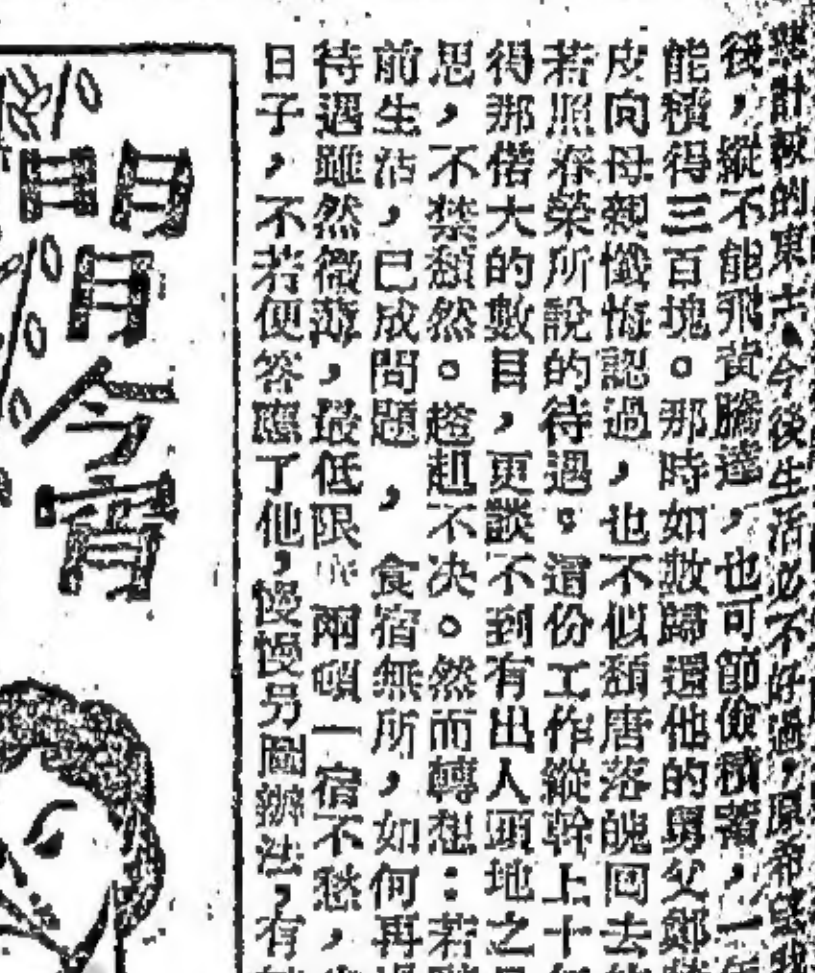 計棟的東去，今後生活必不好過，原希望我
後，縱不能飛黃騰達，也可節儉積蓄，一
能積得三百塊。那時如數歸還他的舅父鄭
皮向母親懺悔認過，也不似頹唐落魄回去
若照存榮所說的待遇，這份工作縱幹上十
得那偌大的數目，更談不到有出人頭地之
思，不禁頹然。趑趄不决。然而轉想：若
前生活，已成問題，食宿無所，如何再
待遇雖然微薄，最低限 兩頓一宿不愁，
日子，不若便答應了他，慢慢另圖辦法，有
今宵